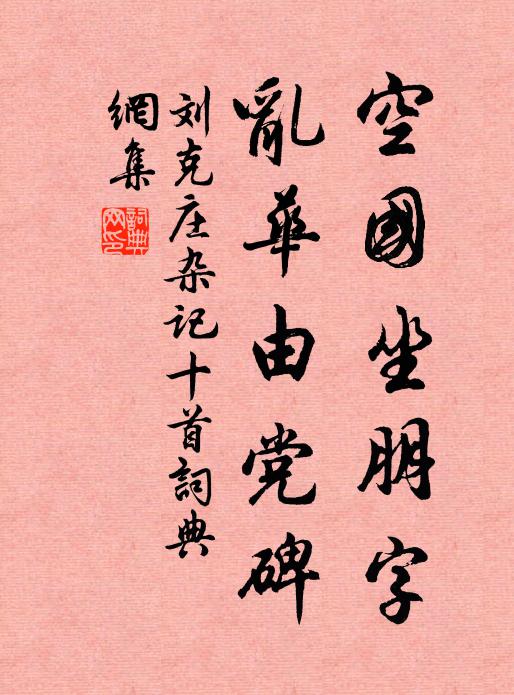 空國坐朋字
亂華由党碑
刘克庄杂记十首詞典
網集
詞典
网印